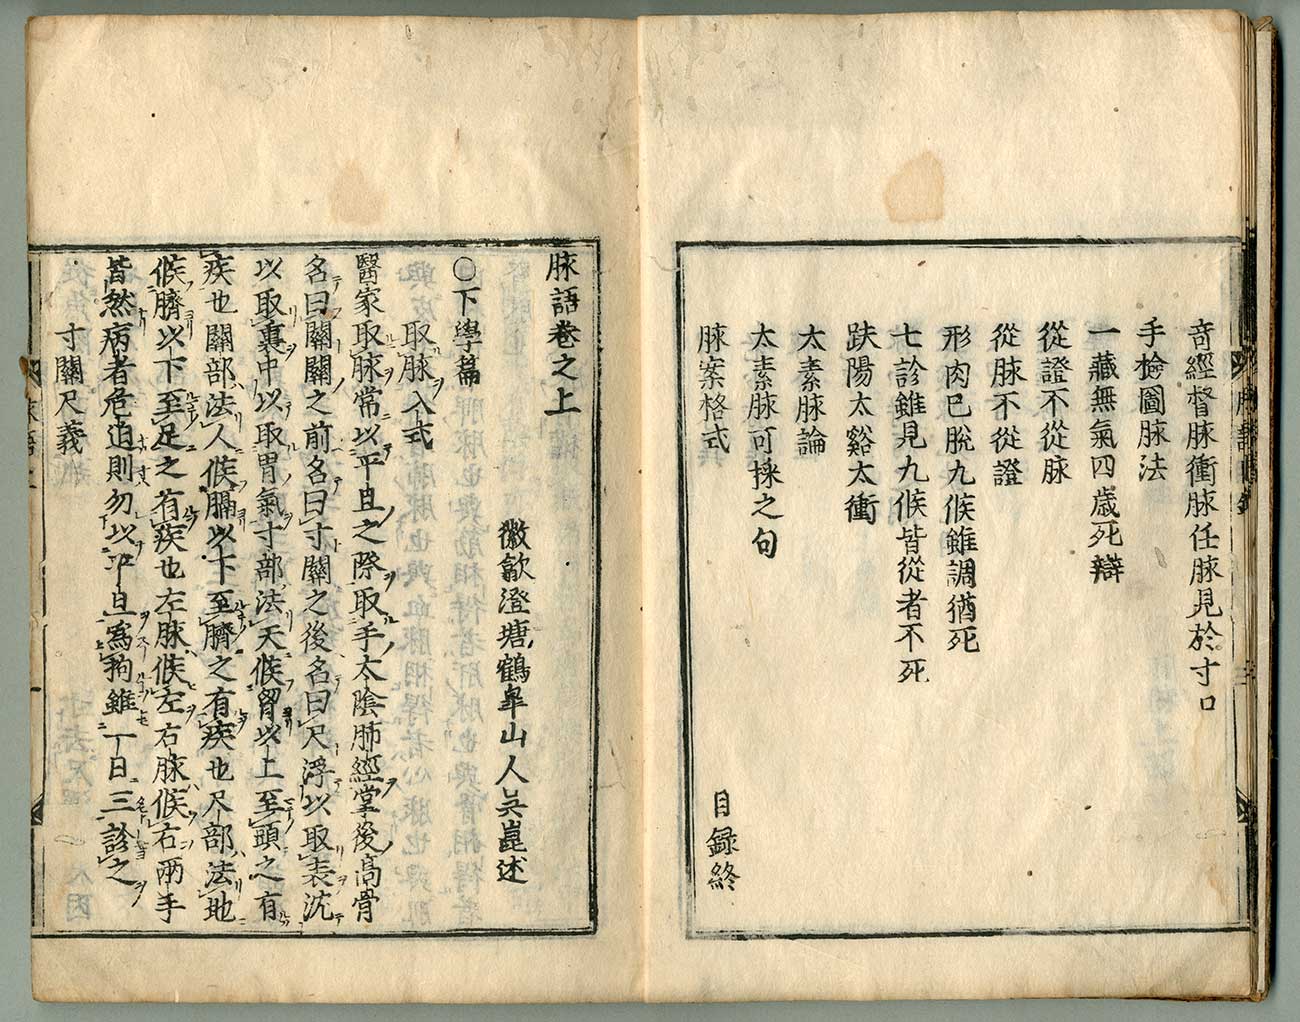 奇經督脉衝脉任脉見於寸口
手檢圖脉法
一藏無氣四歳死辯
從證不從脉
從脉不從證
形肉已脫九候雖調猶死
七診雖見九候皆從者不死
趺陽太谿太衝
太素脉論
太素脉可採之句
脉案格式
目錄終
脉語卷之上
徽歙澄塘鶴皐山人吳崑述
○下學篇
取脉入式
醫家取脉常以平旦之際取手太陰肺經掌後高骨
名曰關關之前名曰寸關之後名曰尺浮以取表沉
以取裏中以取胃氣寸部法天候胷以上至頭之有
疾也關部法人候膈以下至臍之有疾也尺部法地
候臍以下至足之有疾也左脉候左右脉候右兩手
皆然病者危迫則勿以平旦爲拘雖一日三診之
寸關尺義